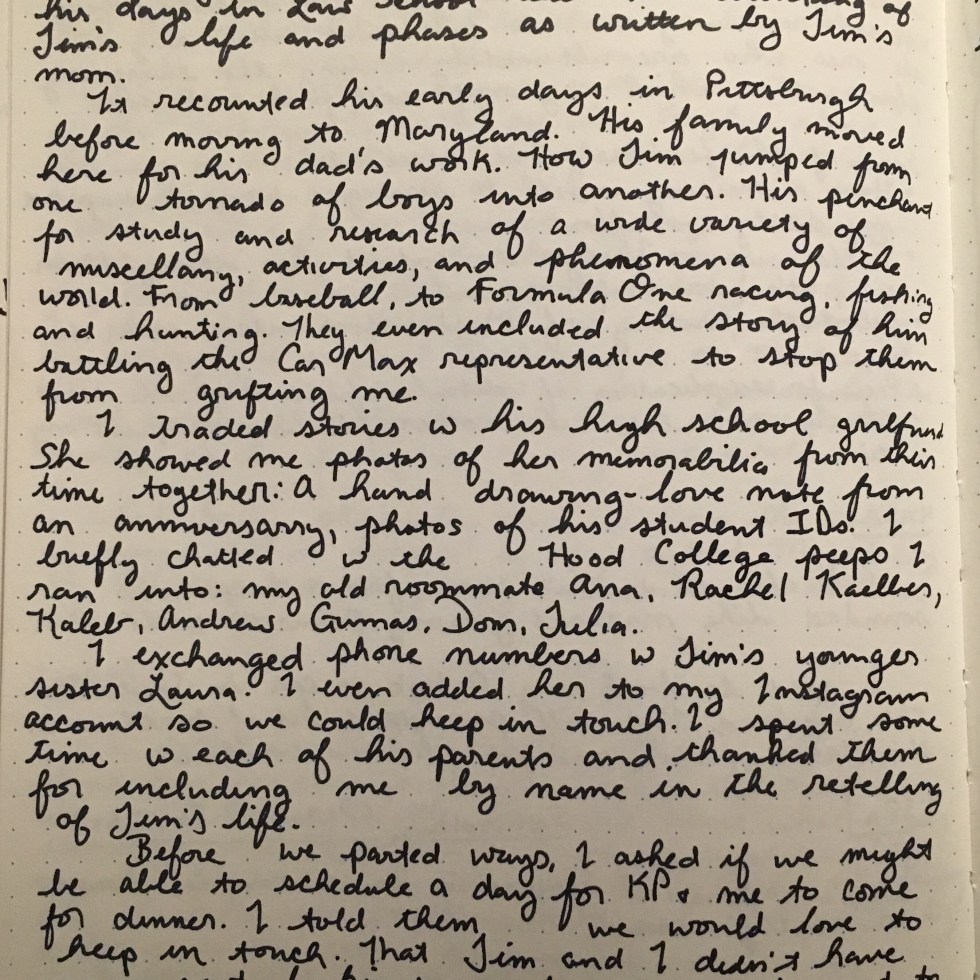 his days in Law School of
Jim's life and phases as written by Jim's
mom.
It recounted his early days in Pittsburgh
before moving to Maryland. His family moved
here for his dad's work. How Jim jumped from
one tornado of boys into another. His penchant
for study and research of a wide variety of
miscellany, activities, and phenomena of the
world. From baseball, to Formula One racing, fishing
and hunting. They even included the story of him
battling the CarMax representative to stop them
from grifting me.
I traded stories w his high school girlfriend
She showed me photos of her memorabilia from their
time together: A hand drawing-love note from
an anniversarry, photos of his student IDs. I
briefly chatted w the Hood College peeps I
ran into: my old roommate Ana, Rachel Kaelber,
Kaleb, Andrew Gumas, Dom, Julia.
I exchanged phone numbers w Jim's younger
sister Laura. I even added her to my Instagram
account so we could keep in touch. I spent some
time w each of his parents and thanked them
for including me by name in the retelling
of Jim's life.
Before we parted ways, I asked if we might
be able to schedule a day for KP & me to come
for dinner. I told them we would love to
keep in touch. That Jim and I didn't have